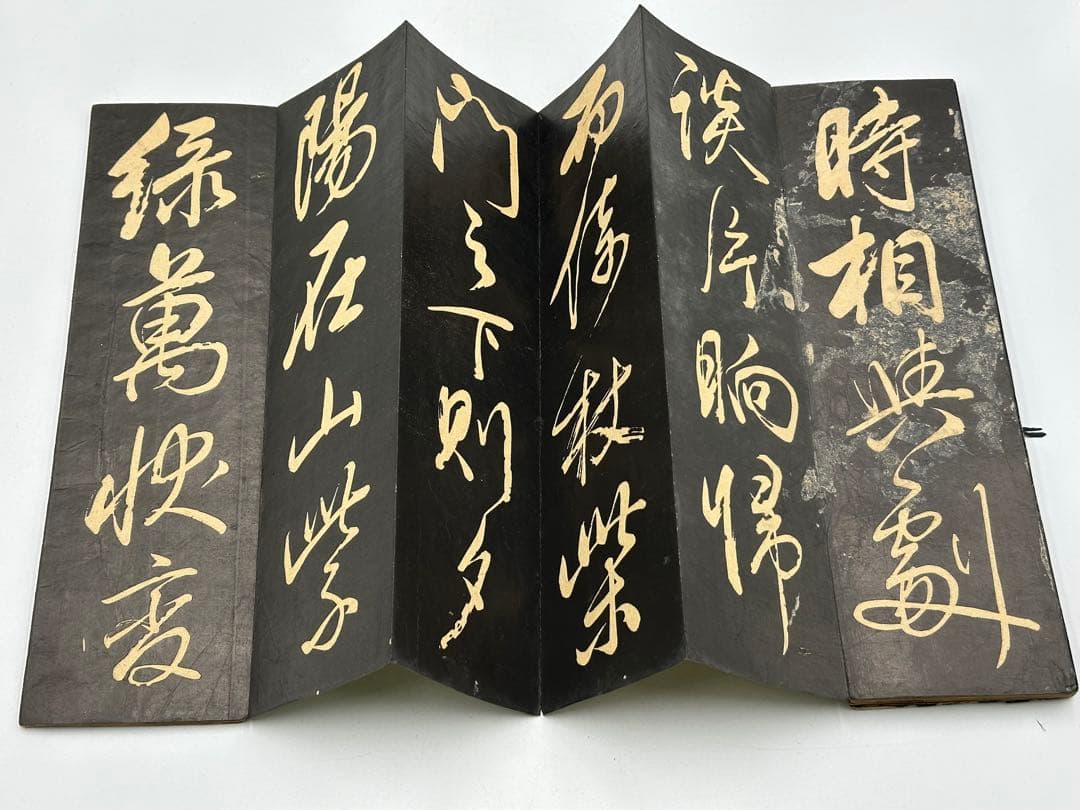 時相與劇
談片晌歸
而倚杖柴
門之下則夕
陽在山紫
綠萬狀變